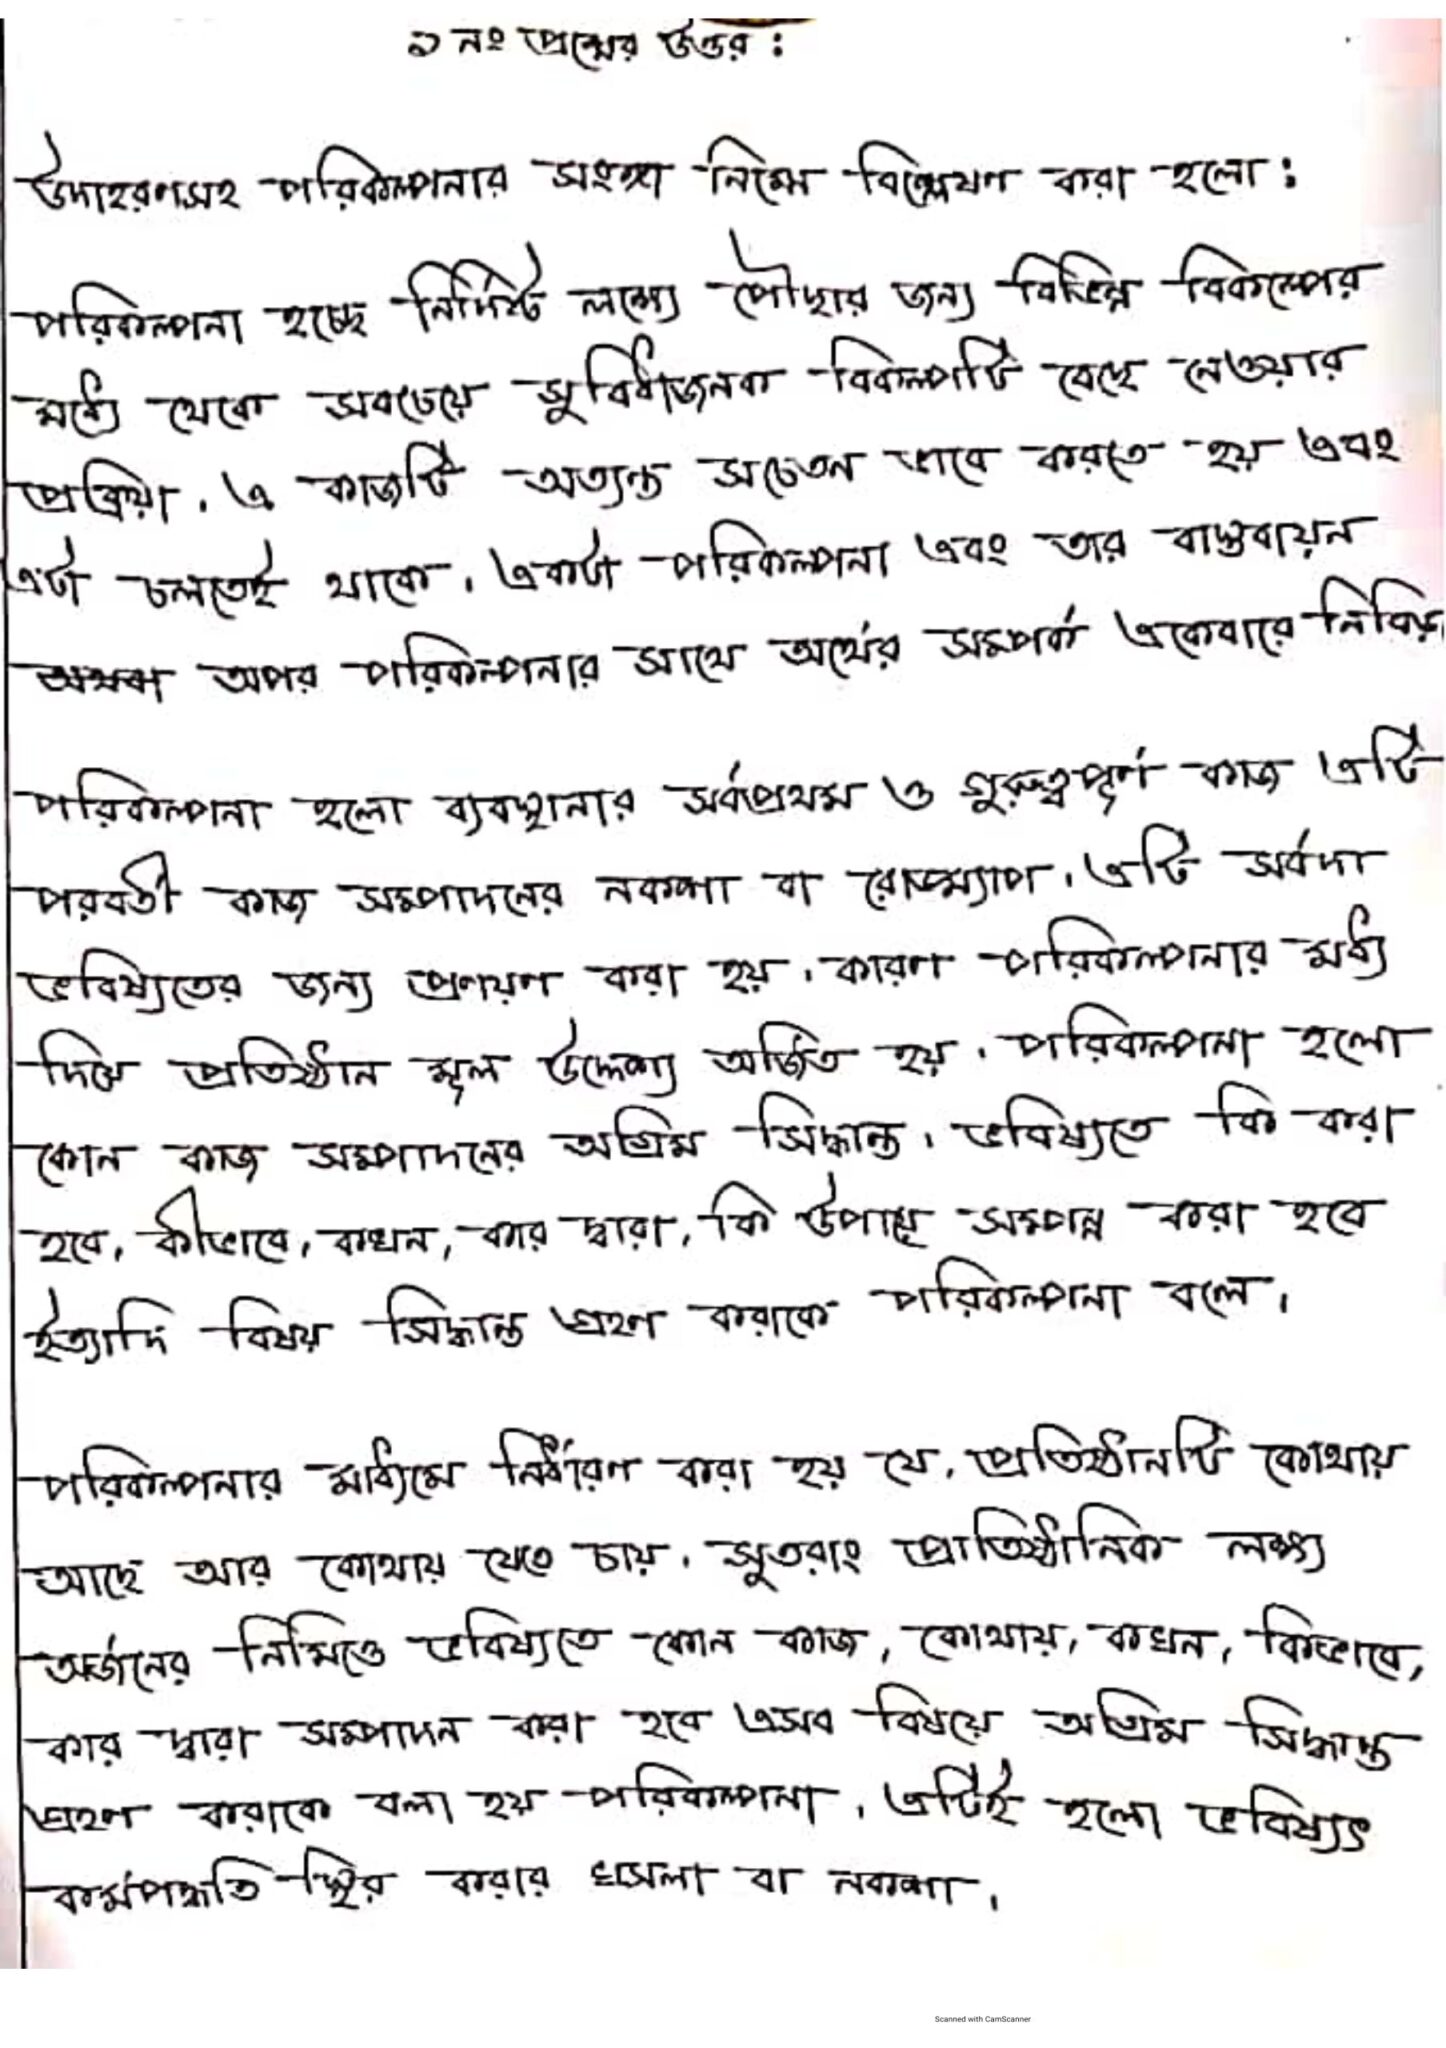 ১ নং প্রশ্নের উত্তর :
উদাহরণসহ পরিকল্পনার সংজ্ঞা নিম্নে বিশ্লেষণ করা হলো :
পরিকল্পনা হচ্ছে নির্দিষ্ট লক্ষ্যে পৌঁছার জন্য বিভিন্ন বিকল্পের
মধ্যে থেকে সবচেয়ে সুবিধাজনক বিকল্পটি বেছে নেওয়ার
প্রক্রিয়া। এ কাজটি অত্যন্ত সচেতন ভাবে করতে হয় এবং
এটা চলতেই থাকে। একটা পরিকল্পনা এবং তার বাস্তবায়ন
অথবা অপর পরিকল্পনার সাথে অর্থের সম্পর্ক একেবারে নিবিড়।
পরিকল্পনা হলো ব্যবস্থানার সর্বপ্রথম ও গুরুত্বপূর্ণ কাজ এটি
পরবর্তী কাজ সম্পাদনের নকশা বা রোডম্যাপ। এটি সর্বদা
ভবিষ্যিতের জন্য প্রণয়ণ করা হয়। কারণ পরিকল্পনার মধ্য
দিয়ে প্রতিষ্ঠান মূল উদ্দেশ্য অর্জিত হয়। পরিকল্পনা হলো
কোন কাজ সম্পাদনের অগ্রিম সিদ্ধান্ত। ভবিষ্যতে কি করা
হবে, কীভাবে, কখন, কার দ্বারা, কি উপায়ে সম্পন্ন করা হবে
ইত্যাদি বিষয় সিদ্ধান্ত গ্রহণ করাকে পরিকল্পনা বলে।
পরিকল্পনার মাধ্যমে নির্ধারণ করা হয় যে, প্রতিষ্ঠানটি কোথায়
আছে আর কোথায় যেতে চায়। সুতরাং প্রাতিষ্ঠানিক লক্ষ্য
অর্জনের নিমিত্তে ভবিষ্যতে কোন কাজ, কোথায়, কখন, কিভাবে,
কার দ্বারা সম্পাদন করা হবে এসব বিষয়ে অগ্রিম সিদ্ধান্ত
গ্রহণ করাকে বলা হয় পরিকল্পনা। এটিই হলো ভবিষ্যৎ
কর্মপদ্ধতি স্থির করার খসলা বা নকশা।
Scanned with CamScanner